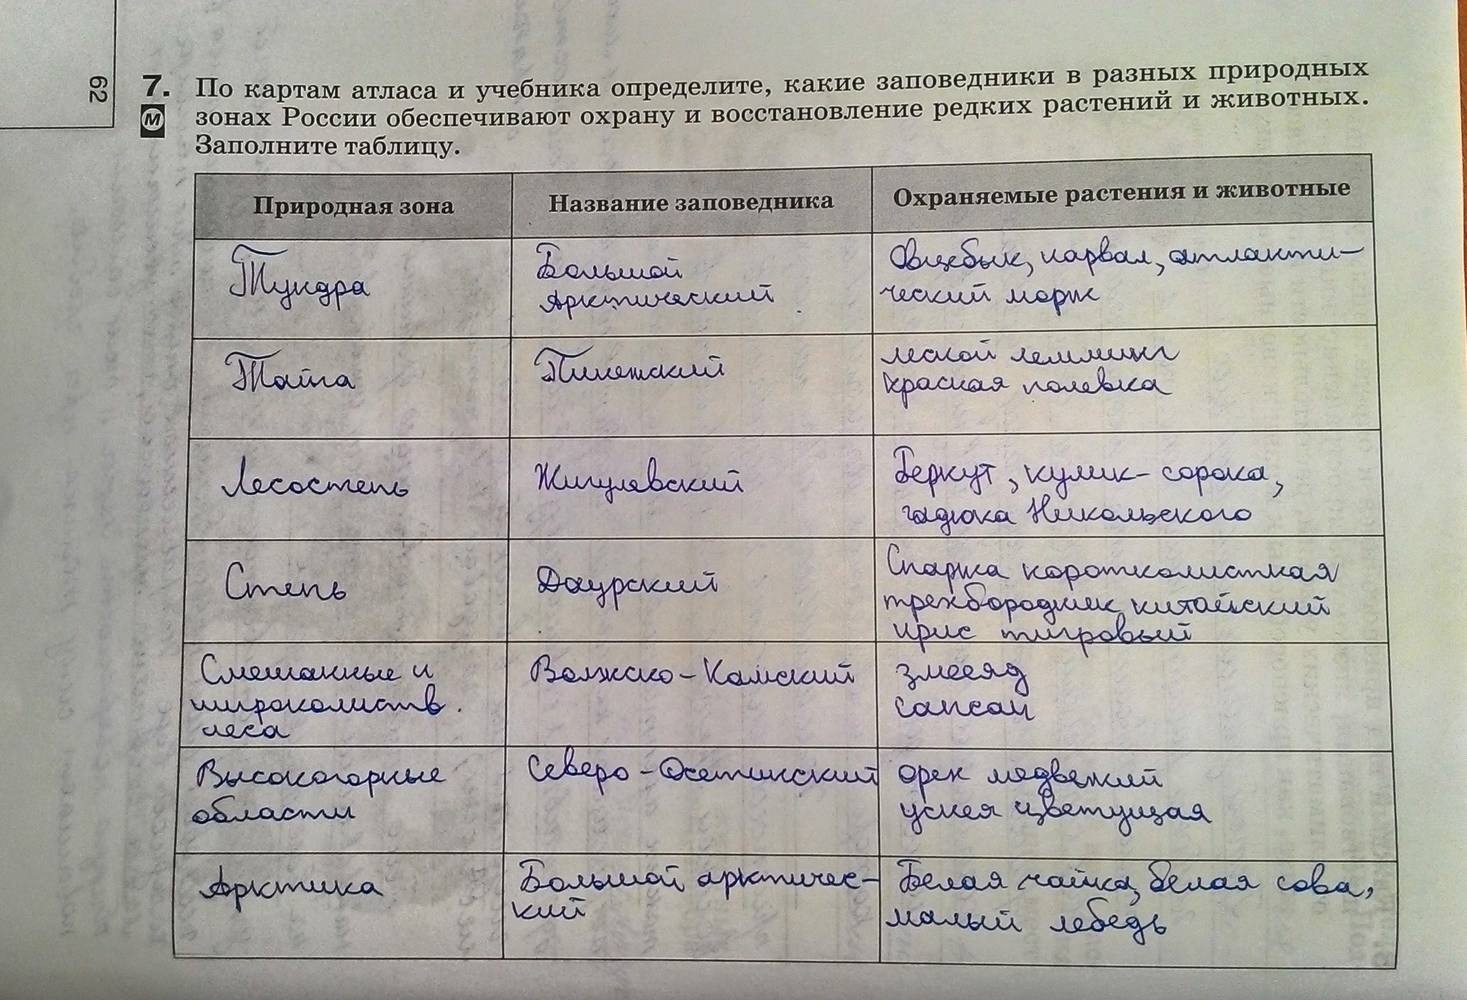 62
7. По картам атласа и учебника определите, какие заповедники в разных природных
М зонах России обеспечивают охрану и восстановление редких растений и животных.
Заполните таблицу.
Природная зона Название заповедника Охраняемые растения и животные
Тундра Большой Овцебык, нарвал, атланти-
Арктический ческий морж
Тайга Пинежский лесной лемминг
красная полевка
Лесостепь Жигулевский Беркут, кулик-сорока,
гадюка Никольского
Степь Даурский Спаржа коротколистная
трехбородник китайский
ирис тигровый
Смешанные и Волжско-Камский змееяд
широколиств. сапсан
леса
Высокогорные Северо-Осетинский орех медвежий
области уснея цветущая
Арктика Большой арктичес- Белая чайка, белая сова,
кий малый лебедь